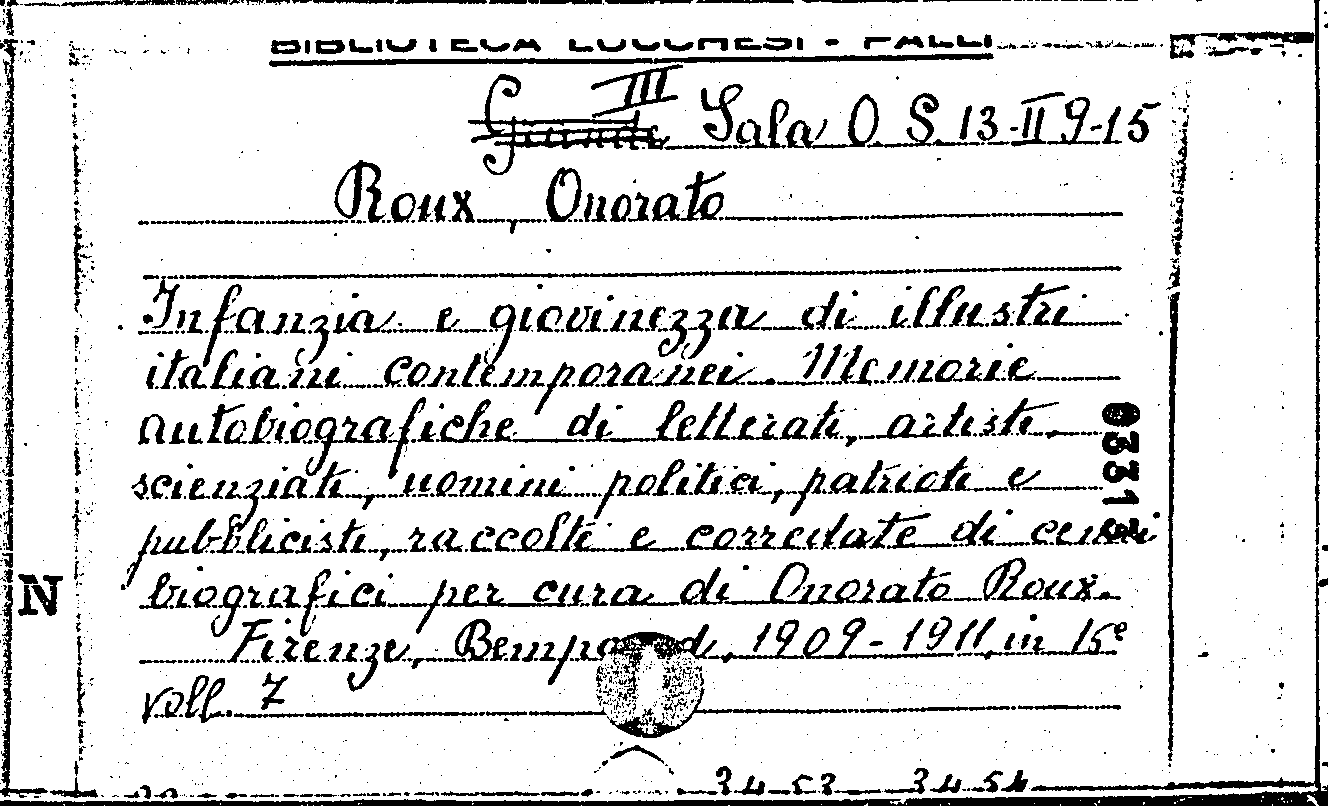 BIBLIOTECA LUCCHESI - PALLI
Grande III Sala O. S. 13-II 9-15
Roux, Onorato
Infanzia e giovinezza di illustri
italiani contemporanei. Memorie
autobiografiche di letterati, artisti,
scienziati, uomini politici, patrioti e
pubblicisti, raccolte e corredate di cenni
biografici per cura di Onorato Roux.
Firenze, Bemporad, 1909-1911, in 15º
voll. 7
3453 3454
03313
N